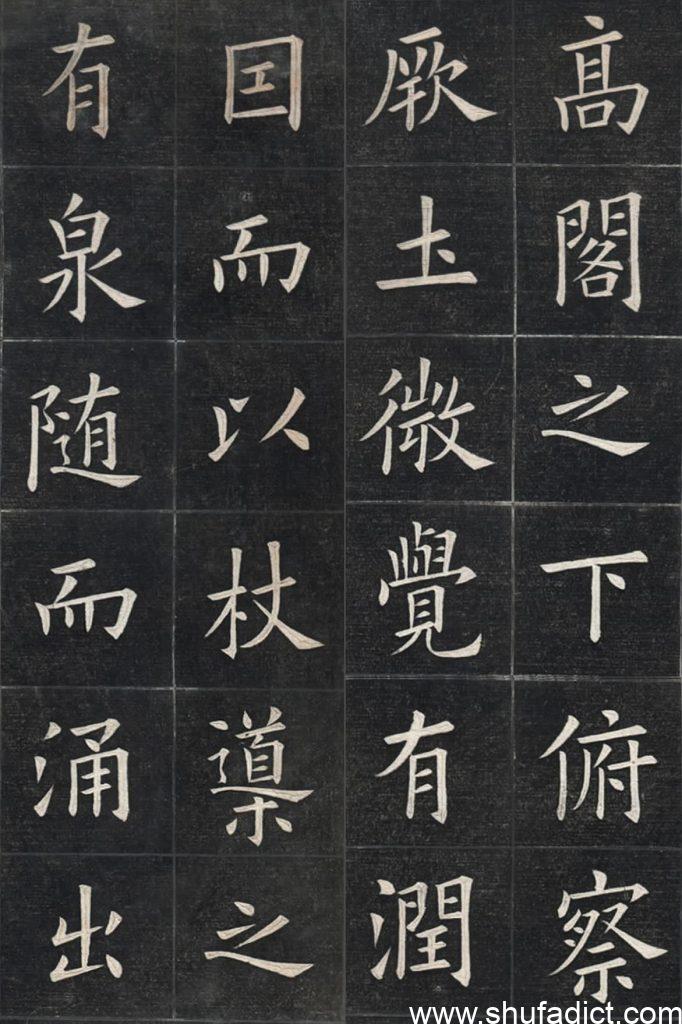 髙閣之下俯察
厥圡微覺有潤
囙而以杖導之
有泉随而涌出
www.shufadict.com